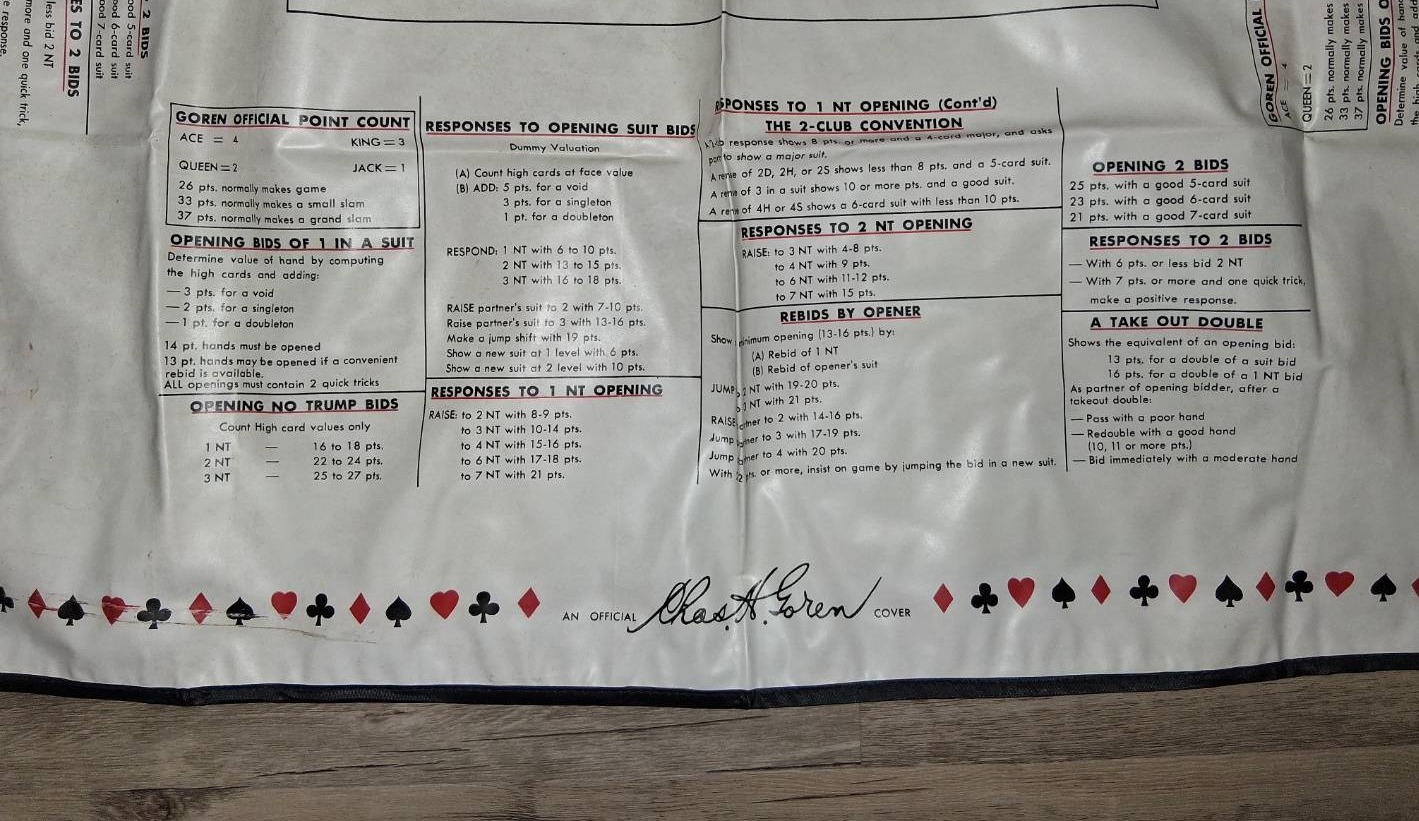 GOREN OFFICIAL POINT COUNT
ACE = 4 KING = 3
QUEEN = 2 JACK = 1
26 pts. normally makes game
33 pts. normally makes a small slam
37 pts. normally makes a grand slam
OPENING BIDS OF 1 IN A SUIT
Determine value of hand by computing
the high cards and adding:
— 3 pts. for a void
— 2 pts. for a singleton
— 1 pt. for a doubleton
14 pt. hands must be opened
13 pt. hands may be opened if a convenient
rebid is available.
ALL openings must contain 2 quick tricks
OPENING NO TRUMP BIDS
Count High card values only
1 NT — 16 to 18 pts.
2 NT — 22 to 24 pts.
3 NT — 25 to 27 pts.
RESPONSES TO OPENING SUIT BIDS
Dummy Valuation
(A) Count high cards at face value
(B) ADD: 5 pts. for a void
3 pts. for a singleton
1 pt. for a doubleton
RESPOND: 1 NT with 6 to 10 pts.
2 NT with 13 to 15 pts.
3 NT with 16 to 18 pts.
RAISE partner's suit to 2 with 7-10 pts.
Raise partner's suit to 3 with 13-16 pts.
Make a jump shift with 19 pts.
Show a new suit at 1 level with 6 pts.
Show a new suit at 2 level with 10 pts.
RESPONSES TO 1 NT OPENING
RAISE: to 2 NT with 8-9 pts.
to 3 NT with 10-14 pts.
to 4 NT with 15-16 pts.
to 6 NT with 17-18 pts.
to 7 NT with 21 pts.
RESPONSES TO 1 NT OPENING (Cont'd)
THE 2-CLUB CONVENTION
response shows 8 pts. or more and a 4-card major, and asks
to show a major suit.
A of 2D, 2H, or 2S shows less than 8 pts. and a 5-card suit.
A of 3 in a suit shows 10 or more pts. and a good suit.
A of 4H or 4S shows a 6-card suit with less than 10 pts.
RESPONSES TO 2 NT OPENING
RAISE: to 3 NT with 4-8 pts.
to 4 NT with 9 pts.
to 6 NT with 11-12 pts.
to 7 NT with 15 pts.
REBIDS BY OPENER
Show opening (13-16 pts.) by:
(A) Rebid of 1 NT
(B) Rebid of opener's suit
JUMP NT with 19-20 pts.
NT with 21 pts.
RAISE to 2 with 14-16 pts.
Jump to 3 with 17-19 pts.
Jump to 4 with 20 pts.
With or more, insist on game by jumping the bid in a new suit.
OPENING 2 BIDS
25 pts. with a good 5-card suit
23 pts. with a good 6-card suit
21 pts. with a good 7-card suit
RESPONSES TO 2 BIDS
— With 6 pts. or less bid 2 NT
— With 7 pts. or more and one quick trick,
make a positive response.
A TAKE OUT DOUBLE
Shows the equivalent of an opening bid:
13 pts. for a double of a suit bid
16 pts. for a double of a 1 NT bid
As partner of opening bidder, after a
takeout double:
— Pass with a poor hand
— Redouble with a good hand
(10, 11 or more pts.)
— Bid immediately with a moderate hand
AN OFFICIAL Chas. H. Goren COVER
2 BIDS
5-card suit
6-card suit
7-card suit
TO 2 BIDS
less bid 2 NT
more and one quick trick,
response.
GOREN OFFICIAL
ACE = 4
QUEEN = 2
26 pts. normally makes
33 pts. normally makes
37 pts. normally makes
OPENING BIDS
Determine value of